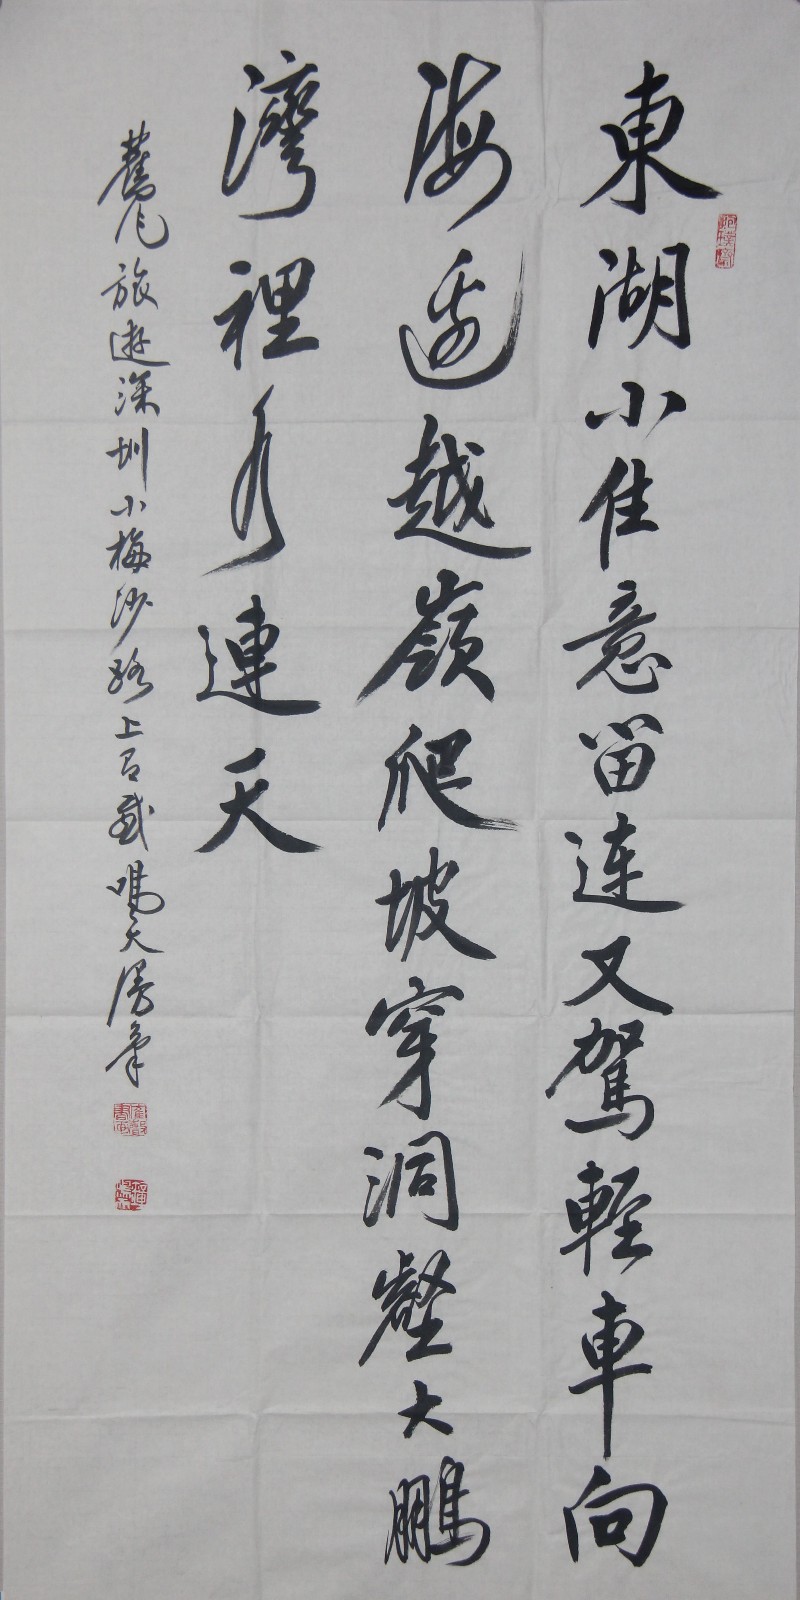 東湖小住意留連又駕輕車向
海边越嶺爬坡穿洞壑大鵬
灣裡水連天
舊作旅遊深圳小梅沙路上有感 鳴天漫筆